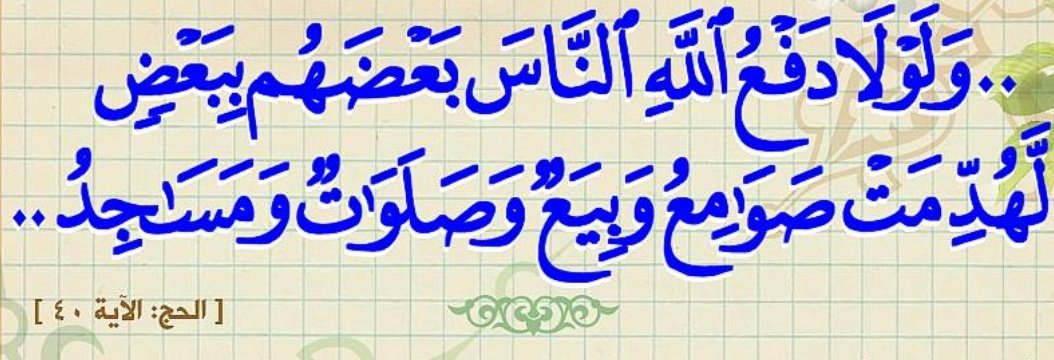 ..وَلَوْلَا دَفْعُ ٱللَّهِ ٱلنَّاسَ بَعْضَهُم بِبَعْضٍ
لَّهُدِّمَتْ صَوَٰمِعُ وَبِيَعٌ وَصَلَوَٰتٌ وَمَسَـٰجِدُ..
[ الحج: الآية ٤٠ ]